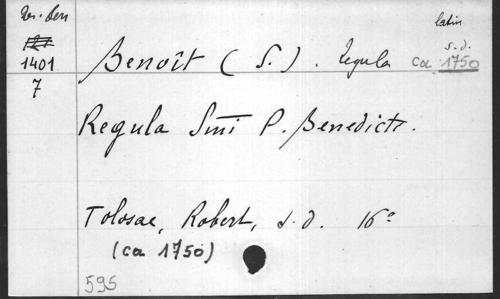 latin
1401
7
Benoît (S.). Regula s.d.
ca 1750
Regula Smi P. Benedicti.
Tolosae, Robert, s.d. 16°
(ca 1750)
595